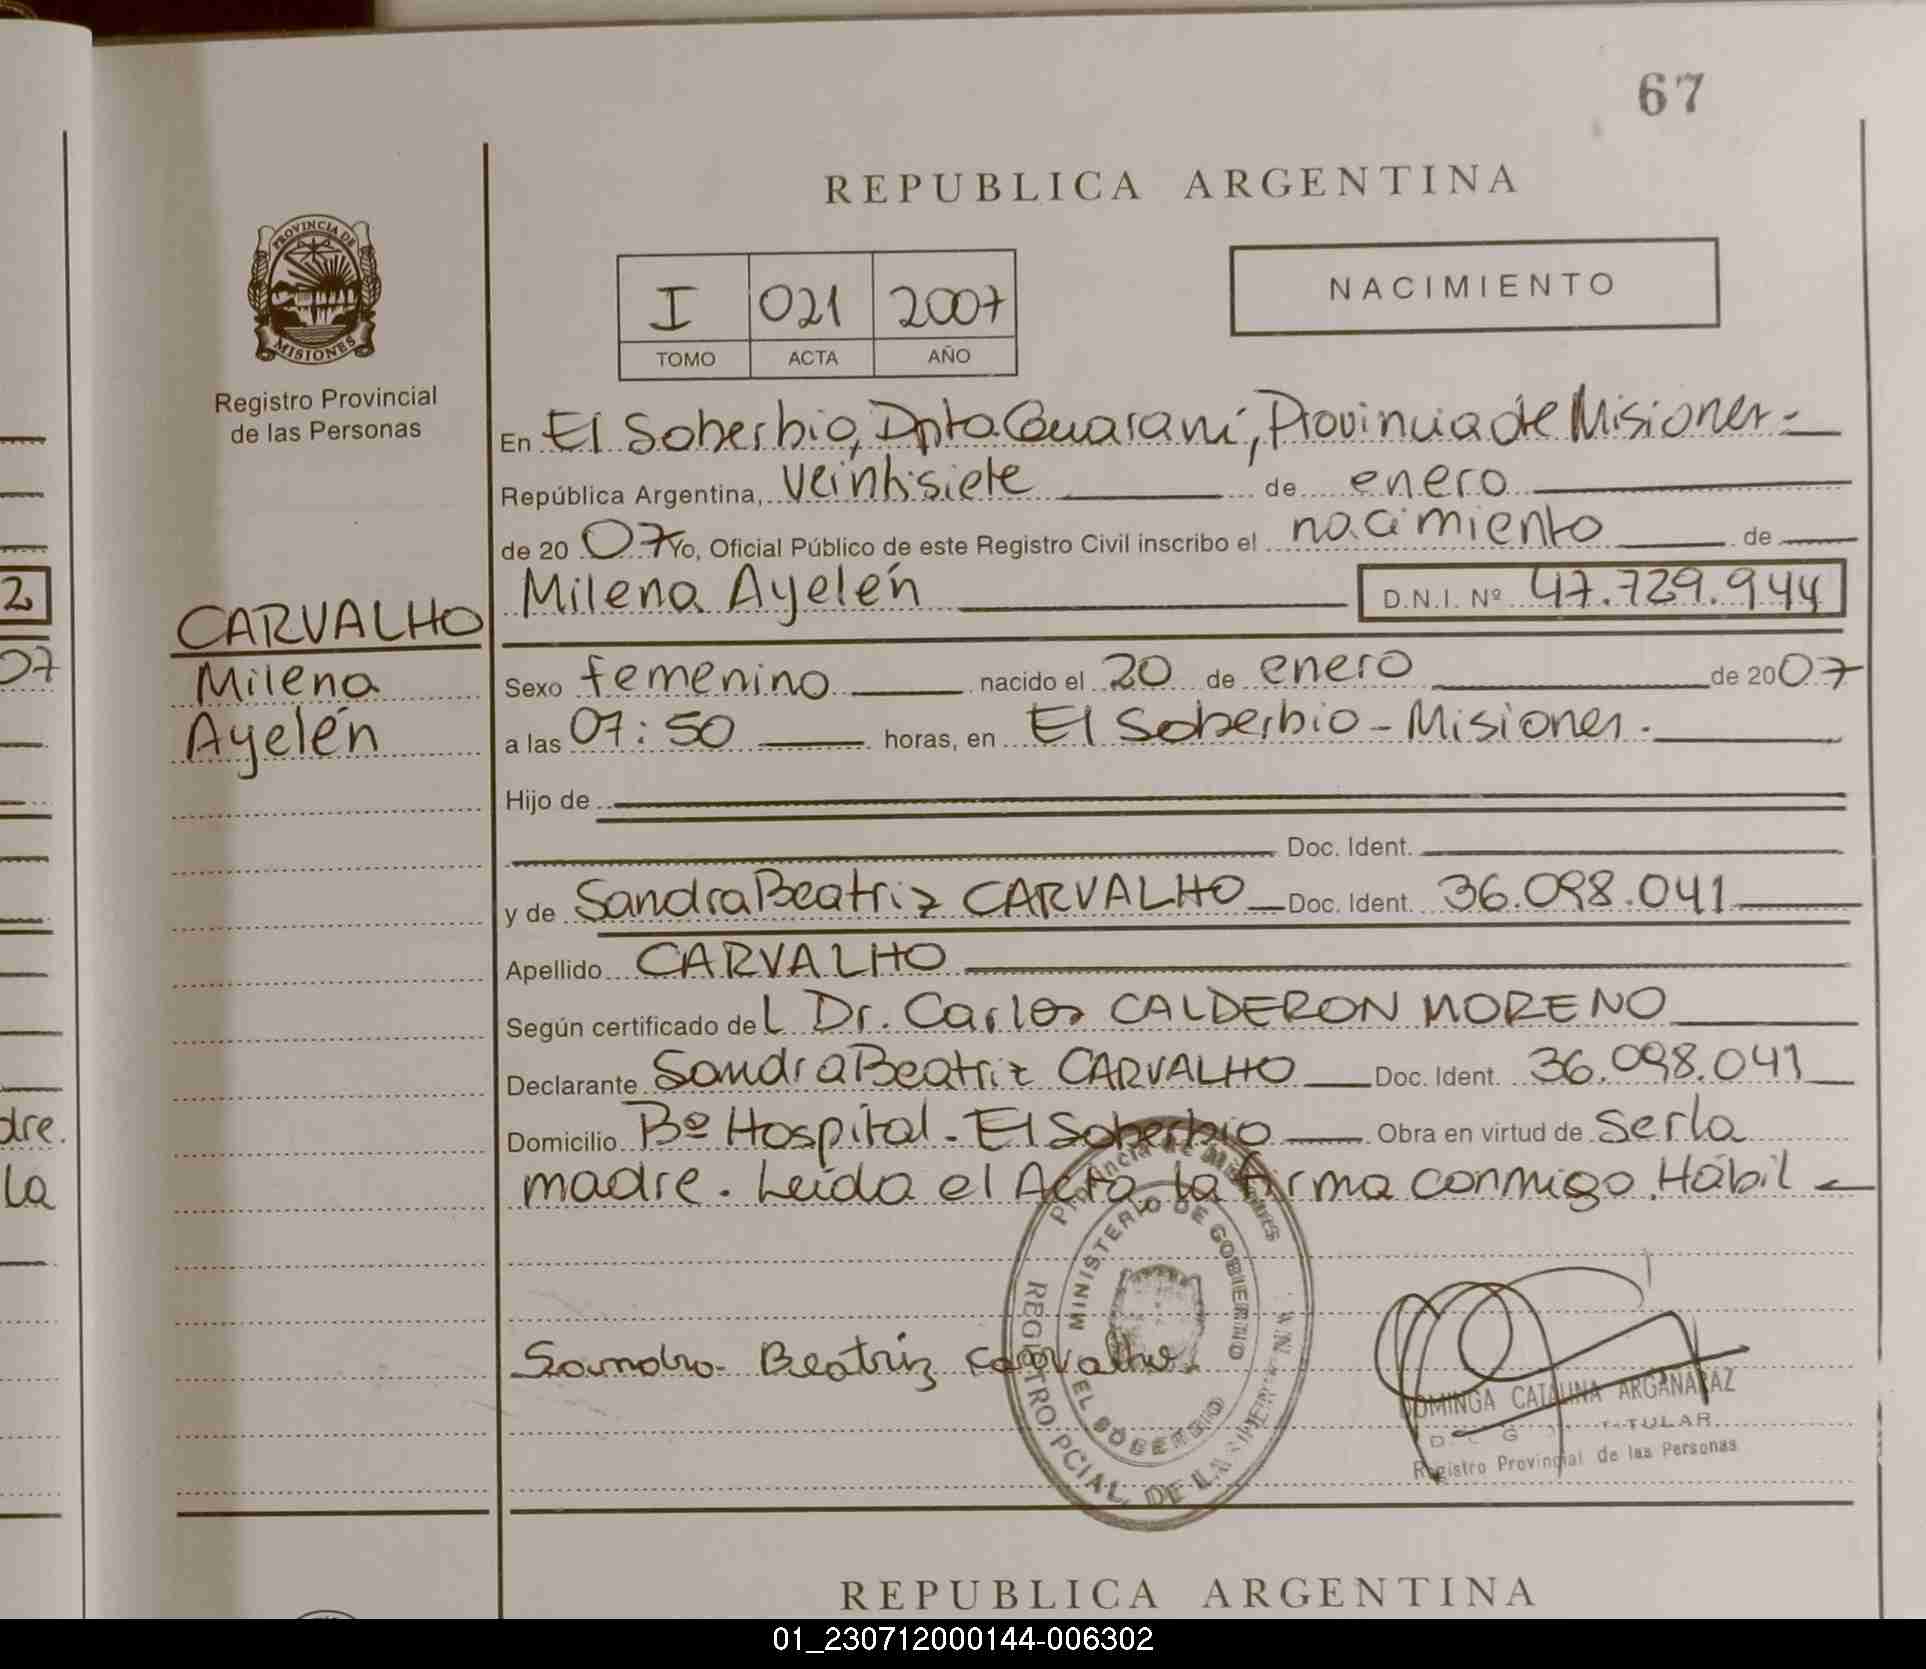 67
REPUBLICA ARGENTINA
PROVINCIA DE
MISIONES
Registro Provincial
de las Personas
I 021 2007
TOMO ACTA AÑO
NACIMIENTO
En El Soberbio, Dpto. Guaraní, Provincia de Misiones
República Argentina, veintisiete de enero
de 20 07 Yo, Oficial Público de este Registro Civil inscribo el nacimiento de
Milena Ayelén D.N.I. Nº 47.729.944
CARVALHO
Milena
Ayelén
Sexo femenino nacido el 20 de enero de 2007
a las 07:50 horas, en El Soberbio - Misiones.
Hijo de
Doc. Ident.
y de Sandra Beatriz CARVALHO Doc. Ident. 36.098.041
Apellido CARVALHO
Según certificado del Dr. Carlos CALDERON MORENO
Declarante Sandra Beatriz CARVALHO Doc. Ident. 36.098.041
Domicilio Bº Hospital - El Soberbio Obra en virtud de Ser la
madre. Leída el Acta, la firma conmigo. Hábil
Provincia de Misiones
MINISTERIO DE GOBIERNO
EL SOBERBIO
REGISTRO PCIAL. DE LAS PERSONAS
Sandra Beatriz Carvalho
DOMINGA CATALINA ARGAÑARAZ
TITULAR
Registro Provincial de las Personas
2
07
dre.
la
REPUBLICA ARGENTINA
01_230712000144-006302